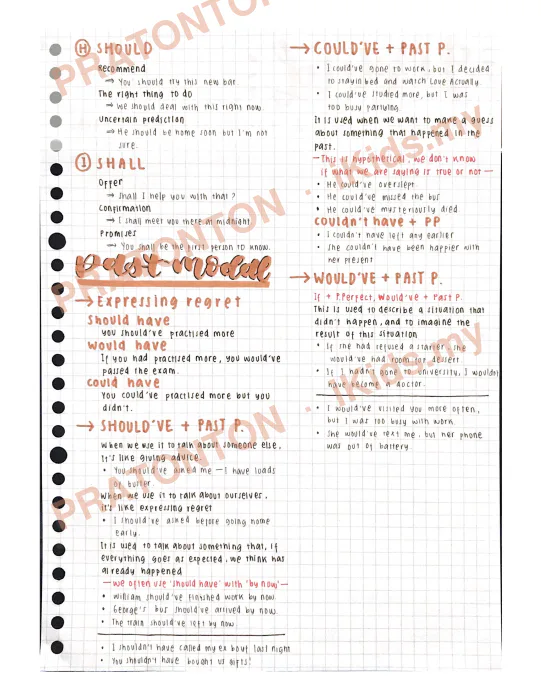 H SHOULD
Recommend
→ You should try this new bar.
The right thing to do
→ We should deal with this right now.
Uncertain prediction
→ He should be home soon but I'm not
sure.
I SHALL
Offer
→ Shall I help you with that?
Confirmation
→ I shall meet you there at midnight.
Promises
→ You shall be the first person to know.
Past modal
→ Expressing regret
Should have
You should've practised more
would have
If you had practised more, you would've
passed the exam.
could have
You could've practised more but you
didn't.
→ SHOULD'VE + PAST P.
When we use it to talk about someone else,
it's like giving advice.
• You should've asked me – I have loads
of butter
When we use it to talk about ourselves,
it's like expressing regret
• I should've asked before going home
early.
It is used to talk about something that, if
everything goes as expected, we think has
already happened
— We often use 'should have' with 'by now' —
• William should've finished work by now.
• George's bus should've arrived by now.
• The train should've left by now.
• I shouldn't have called my ex bout last night
• You shouldn't have bought us gifts!
→ COULD'VE + PAST P.
• I could've gone to work, but I decided
to stay in bed and watch Love Actually.
• I could've studied more, but I was
too busy partying.
It is used when we want to make a guess
about something that happened in the
past.
— This is hypothetical, we don't know
if what we are saying is true or not —
• He could've overslept.
• He could've missed the bus
• He could've mysteriously died.
couldn't have + PP
• I couldn't have left any earlier
• She couldn't have been happier with
her present
→ WOULD'VE + PAST P.
If + P.Perfect, Would've + Past P.
This is used to describe a situation that
didn't happen, and to imagine the
result of this situation
• If she had refused a starter, she
would've had room for dessert.
• If I hadn't gone to university, I wouldn't
have become a doctor.
• I would've visited you more often,
but I was too busy with work.
• She would've text me, but her phone
was out of battery.
PRATONTON · iKids.my
PRATONTON · iKids.my
PRATONTON · iKids.my